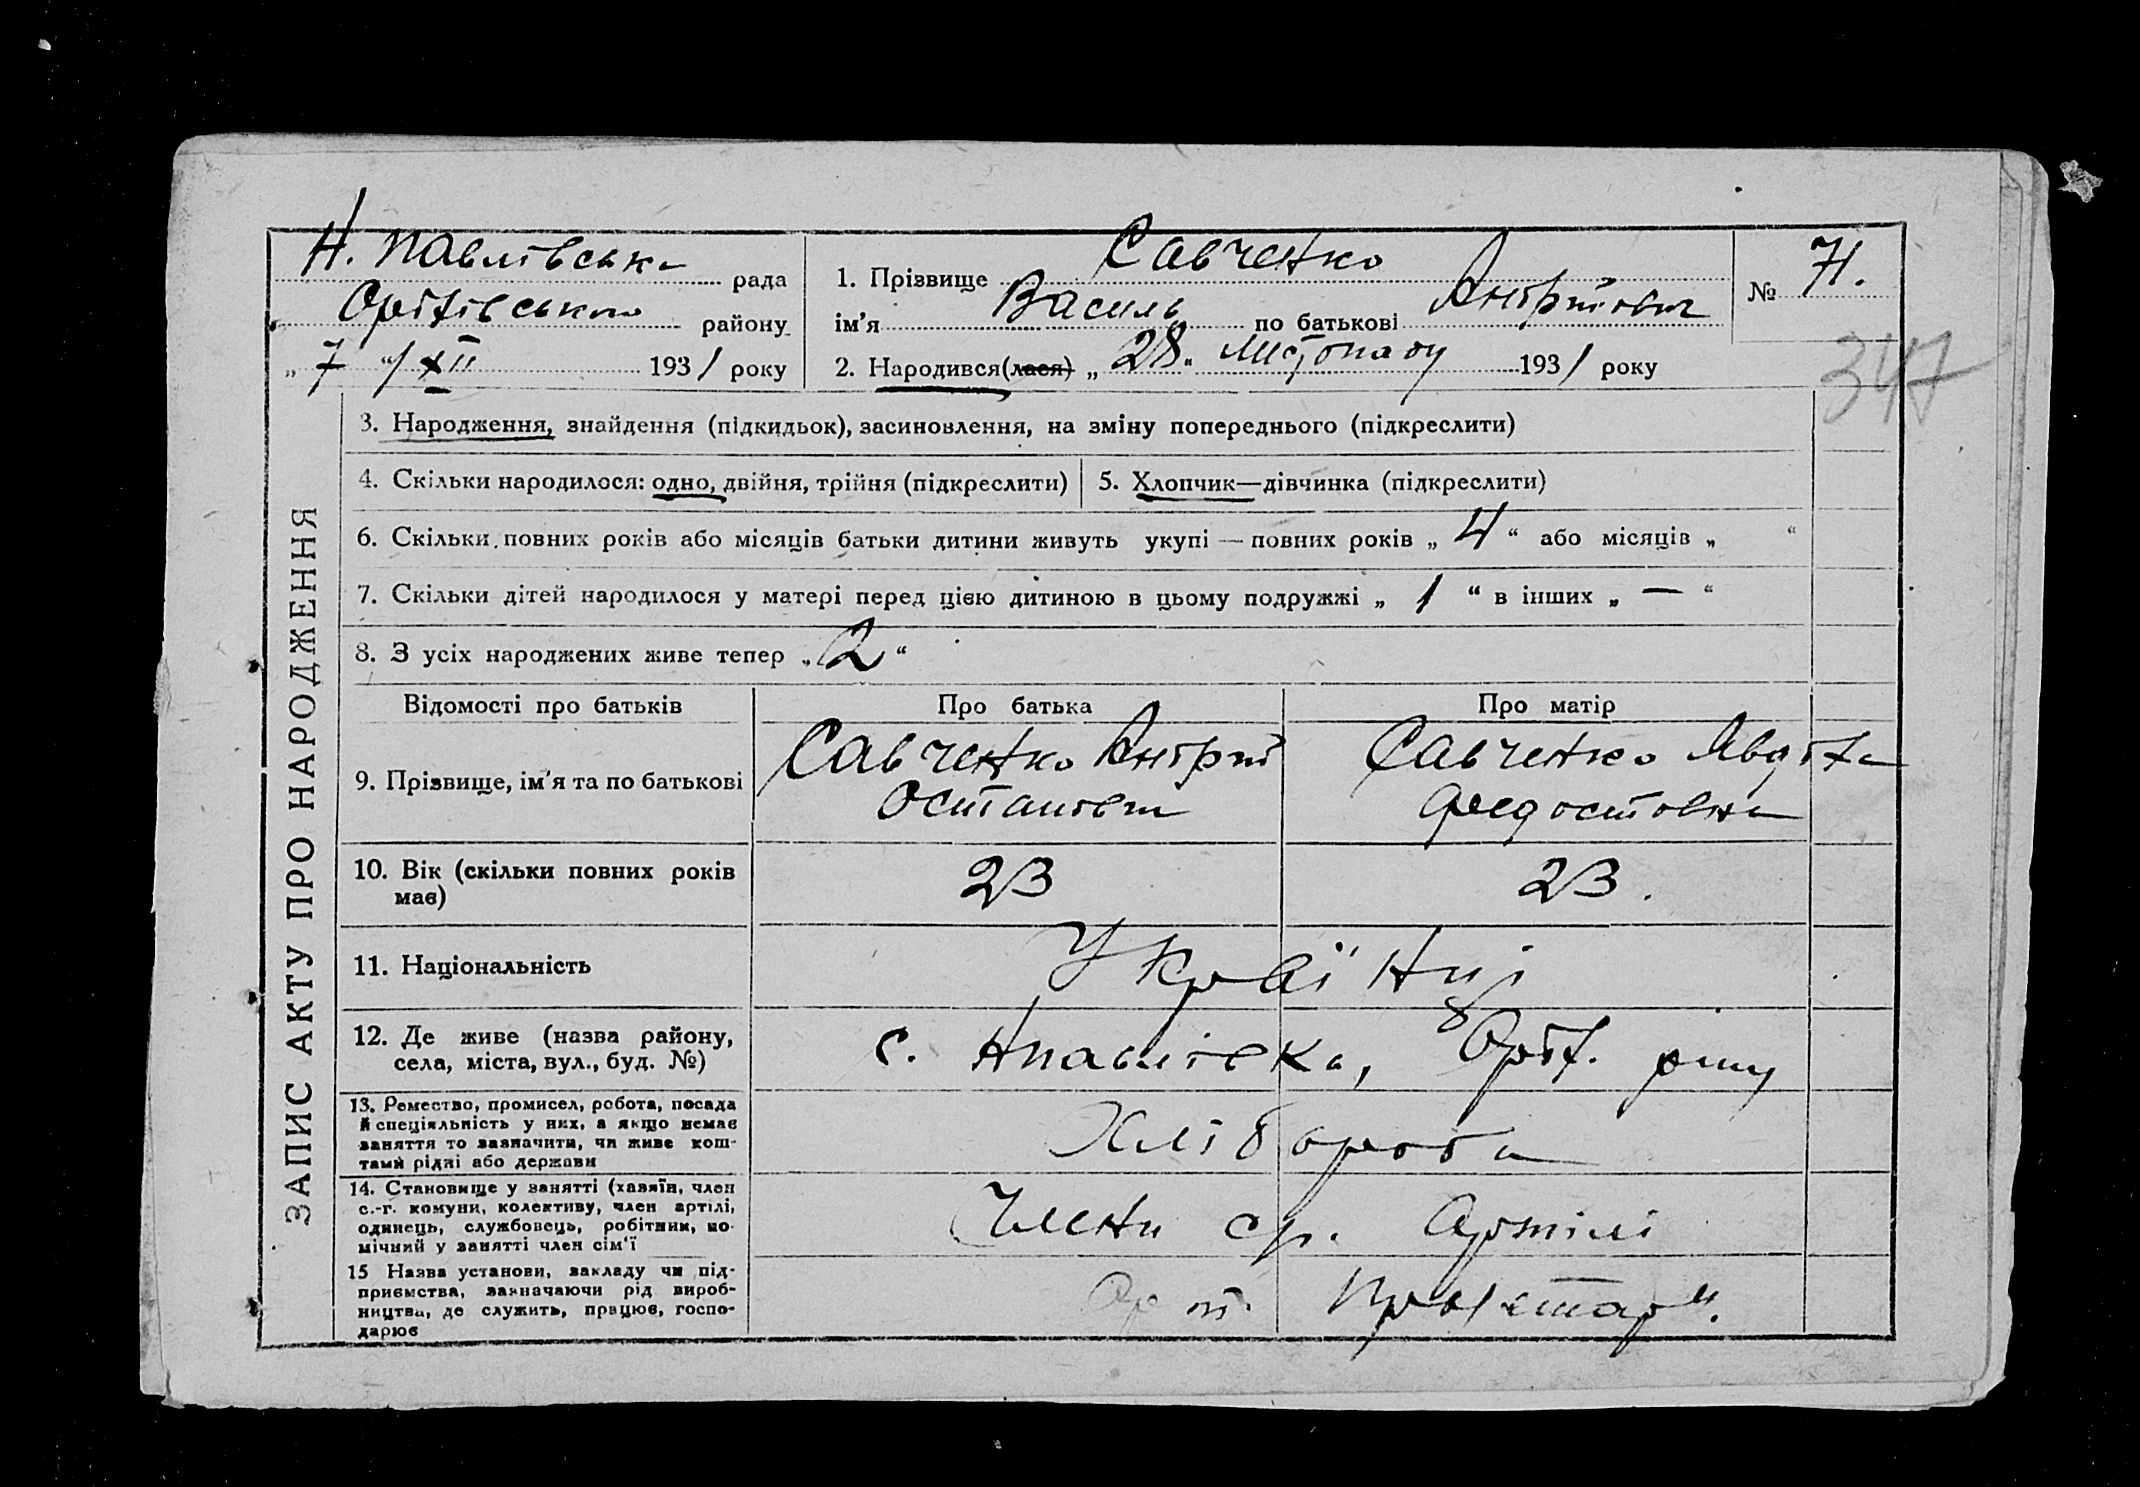 Н. Павлівська рада
Оріхівського району
„ 7 “ / XII 1931 року
1. Прізвище Савченко
ім’я Василь по батькові Андрійович
2. Народився(лася) „ 28 “ листопаду 1931 року
№ 71.
347
3. Народження, знайдення (підкидьок), засиновлення, на зміну попереднього (підкреслити)
4. Скільки народилося: одно, двійня, трійня (підкреслити)
5. Хлопчик—дівчинка (підкреслити)
6. Скільки повних років або місяців батьки дитини живуть укупі — повних років „ 4 “ або місяців „ “
7. Скільки дітей народилося у матері перед цією дитиною в цьому подружжі „ 1 “ в інших „ — “
8. З усіх народжених живе тепер „ 2 “
ЗАПИС АКТУ ПРО НАРОДЖЕННЯ
Відомості про батьків Про батька Про матір
9. Прізвище, ім’я та по батькові
Савченко Андрій
Остапович
Савченко Явдоха
Федостовна
10. Вік (скільки повних років
має)
23 23.
11. Національність
Українці
12. Де живе (назва району,
села, міста, вул., буд. №)
с. Нпавлівка, Оріх. р-ну
13. Ремество, промисел, робота, посада
й спеціяльність у них, а якщо немає
заняття то зазначити, чи живе кош-
тами рідні або держави
Хлібороби
14. Становище у занятті (хазяїн, член
с.-г. комуни, колективу, член артілі,
одинець, службовець, робітник, по-
мічний у занятті член сім’ї
Члени ср. Артілі
15 Назва установи, закладу чи під-
приємства, зазначаючи рід вироб-
ництва, де служить, працює, госпо-
дарює
Ар т. Пролетар“.